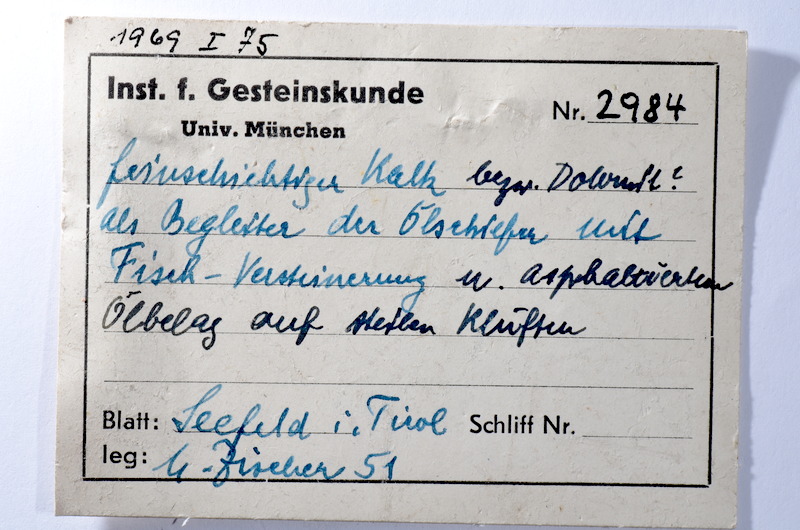 1969 I 75
Inst. f. Gesteinskunde
Univ. München
Nr. 2984
feinschichtiger Kalk bezw. Dolomit?
als Begleiter der Ölschiefer mit
Fisch-Versteinerung u. asphaltiertem
Ölbelag auf steilen Klüften
Blatt: Seefeld i. Tirol Schliff Nr.
leg: Fischer 51